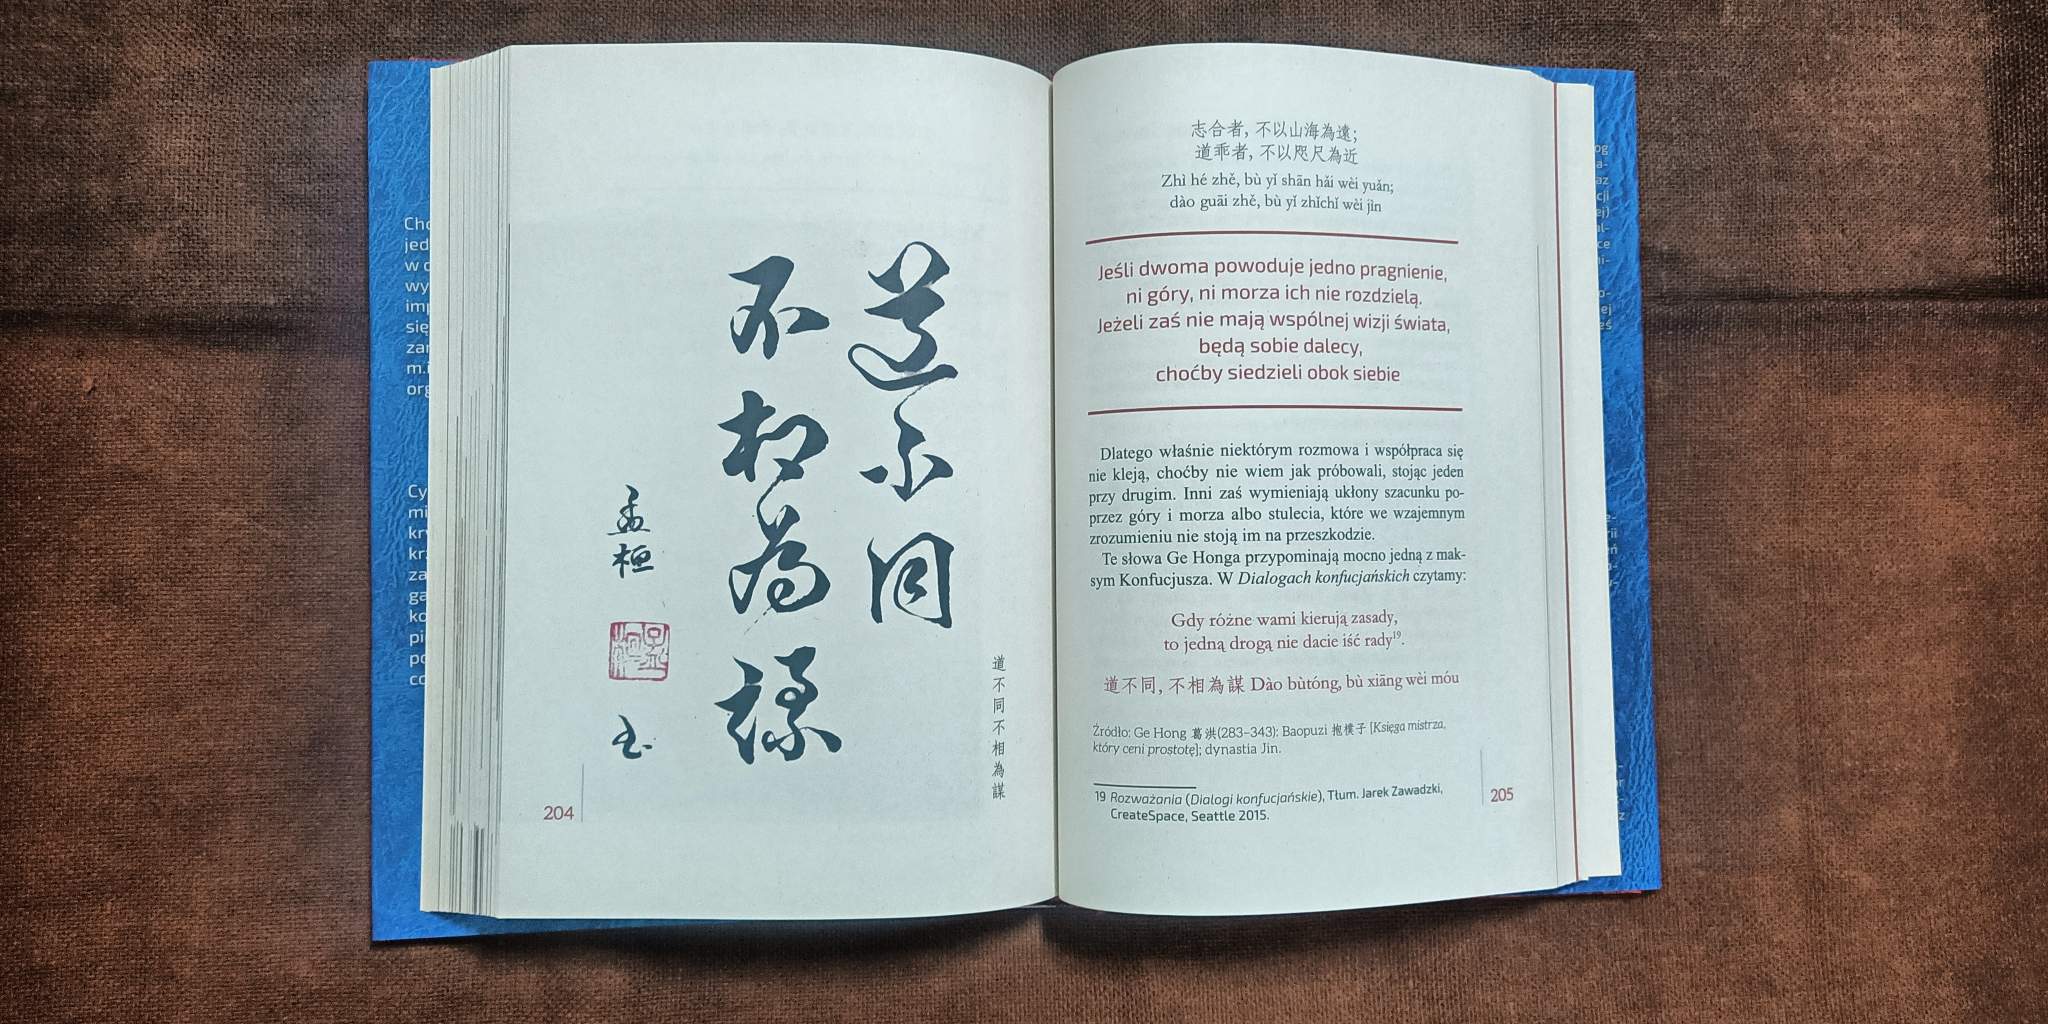 道不同
不相為謀
孟桓
书
道不同不相為謀
204
志合者, 不以山海為遠;
道乖者, 不以咫尺為近
Zhì hé zhě, bù yǐ shān hǎi wèi yuǎn;
dào guāi zhě, bù yǐ zhǐchǐ wèi jìn
Jeśli dwoma powoduje jedno pragnienie,
ni góry, ni morza ich nie rozdzielą.
Jeżeli zaś nie mają wspólnej wizji świata,
będą sobie dalecy,
choćby siedzieli obok siebie
Dlatego właśnie niektórym rozmowa i współpraca się
nie kleją, choćby nie wiem jak próbowali, stojąc jeden
przy drugim. Inni zaś wymieniają ukłony szacunku po-
przez góry i morza albo stulecia, które we wzajemnym
zrozumieniu nie stoją im na przeszkodzie.
Te słowa Ge Honga przypominają mocno jedną z mak-
sym Konfucjusza. W Dialogach konfucjańskich czytamy:
Gdy różne wami kierują zasady,
to jedną drogą nie dacie iść rady19.
道不同, 不相為謀 Dào bùtóng, bù xiāng wèi móu
Źródło: Ge Hong 葛洪(283–343): Baopuzi 抱樸子 [Księga mistrza,
który ceni prostotę]; dynastia Jin.
19 Rozważania (Dialogi konfucjańskie), Tłum. Jarek Zawadzki,
CreateSpace, Seattle 2015.
205